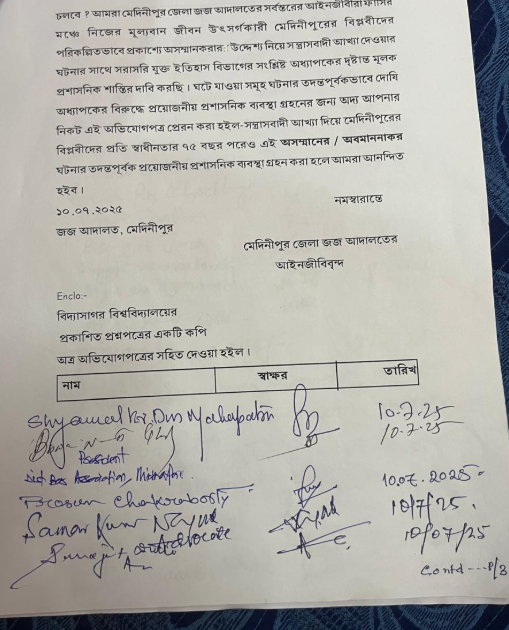 চলবে ? আমরা মেদিনীপুর জেলা জজ আদালতের সর্বস্তরের আইনজীবীরা ফাঁসির
মঞ্চে নিজের মূল্যবান জীবন উৎসর্গকারী মেদিনীপুরের বিপ্লবীদের
পরিকল্পিতভাবে প্রকাশ্যে অসম্মানকরার উদ্দেশ্য নিয়ে সন্ত্রাসবাদী আখ্যা দেওয়ার
ঘটনার সাথে সরাসরি যুক্ত ইতিহাস বিভাগের সংশ্লিষ্ট অধ্যাপকের দৃষ্টান্ত মূলক
প্রশাসনিক শাস্তির দাবি করছি । ঘটে যাওয়া সমূহ ঘটনার তদন্তপূর্বকভাবে দোষি
অধ্যাপকের বিরুদ্ধে প্রয়োজনীয় প্রশাসনিক ব্যবস্থা গ্রহনের জন্য অদ্য আপনার
নিকট এই অভিযোগপত্র প্রেরন করা হইল-সন্ত্রাসবাদী আখ্যা দিয়ে মেদিনীপুরের
বিপ্লবীদের প্রতি স্বাধীনতার ৭৫ বছর পরেও এই অসম্মানের / অবমাননাকর
ঘটনার তদন্তপূর্বক প্রয়োজনীয় প্রশাসনিক ব্যবস্থা গ্রহন করা হলে আমরা আনন্দিত
হইব ।
নমস্বারান্তে
১০.০৭.২০২৫
জজ আদালত, মেদিনীপুর
মেদিনীপুর জেলা জজ আদালতের
আইনজীবিবৃন্দ
Enclo:-
বিদ্যাসাগর বিশ্ববিদ্যালয়ের
প্রকাশিত প্রশ্নপত্রের একটি কপি
অত্র অভিযোগপত্রের সহিত দেওয়া হইল ।
নাম স্বাক্ষর তারিখ
Shyamal Kr. Das Mahapatra 10-7-25
10-7-25
President
Dist Bar Association, Midnapore.
Prosun Chakraborty 10.07.2025
Samar Kumar Nayak 10/7/25.
Advocate 10/07/25
Contd---P/3